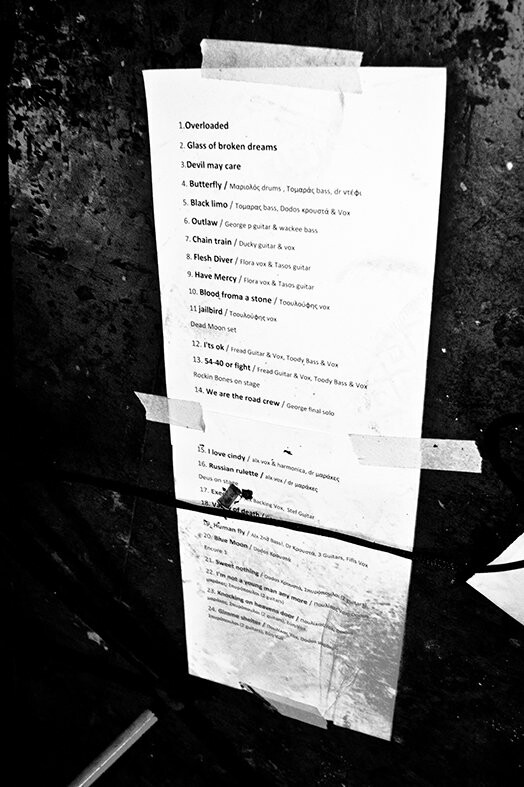 1.Overloaded
2. Glass of broken dreams
3.Devil may care
4. Butterfly / Μαριολός drums , Τομαράς bass, dr ντέφι
5. Black limo / Τομαρας bass, Dodos κρουστά & Vox
6. Outlaw / George p guitar & wackee bass
7. Chain train / Ducky guitar & vox
8. Flesh Diver / Flora vox & Tasos guitar
9. Have Mercy / Flora vox & Tasos guitar
10. Blood froma a stone / Τσουλούφης vox
11 jailbird / Τσουλούφης vox
Dead Moon set
12. I'ts ok / Fread Guitar & Vox, Toody Bass & Vox
13. 54-40 or fight / Fread Guitar & Vox, Toody Bass & Vox
Rockin Bones on stage
14. We are the road crew / George final solo
15. I love cindy / alx vox & harmonica, dr μαράκες
16. Russian rulette / alx vox / dr μαράκες
Deus on stage
17. Backing Vox, Stef Guitar
18. of death /
19. Human fly / Alx 2nd Bass, Dr Κρουστά, 3 Guitars, Fiffs Vox
20. Blue Moon / Dodos Κρουστά
Encore 1
21. Sweet nothing / Dodos Κρουστά, (2 guitars)
22. I'm not a young man any more /
(2 guitars)
23. Knocking on heavens door /
(2 guitars),
24. Gimme shelter / Vox, Dodos
(2 guitars),